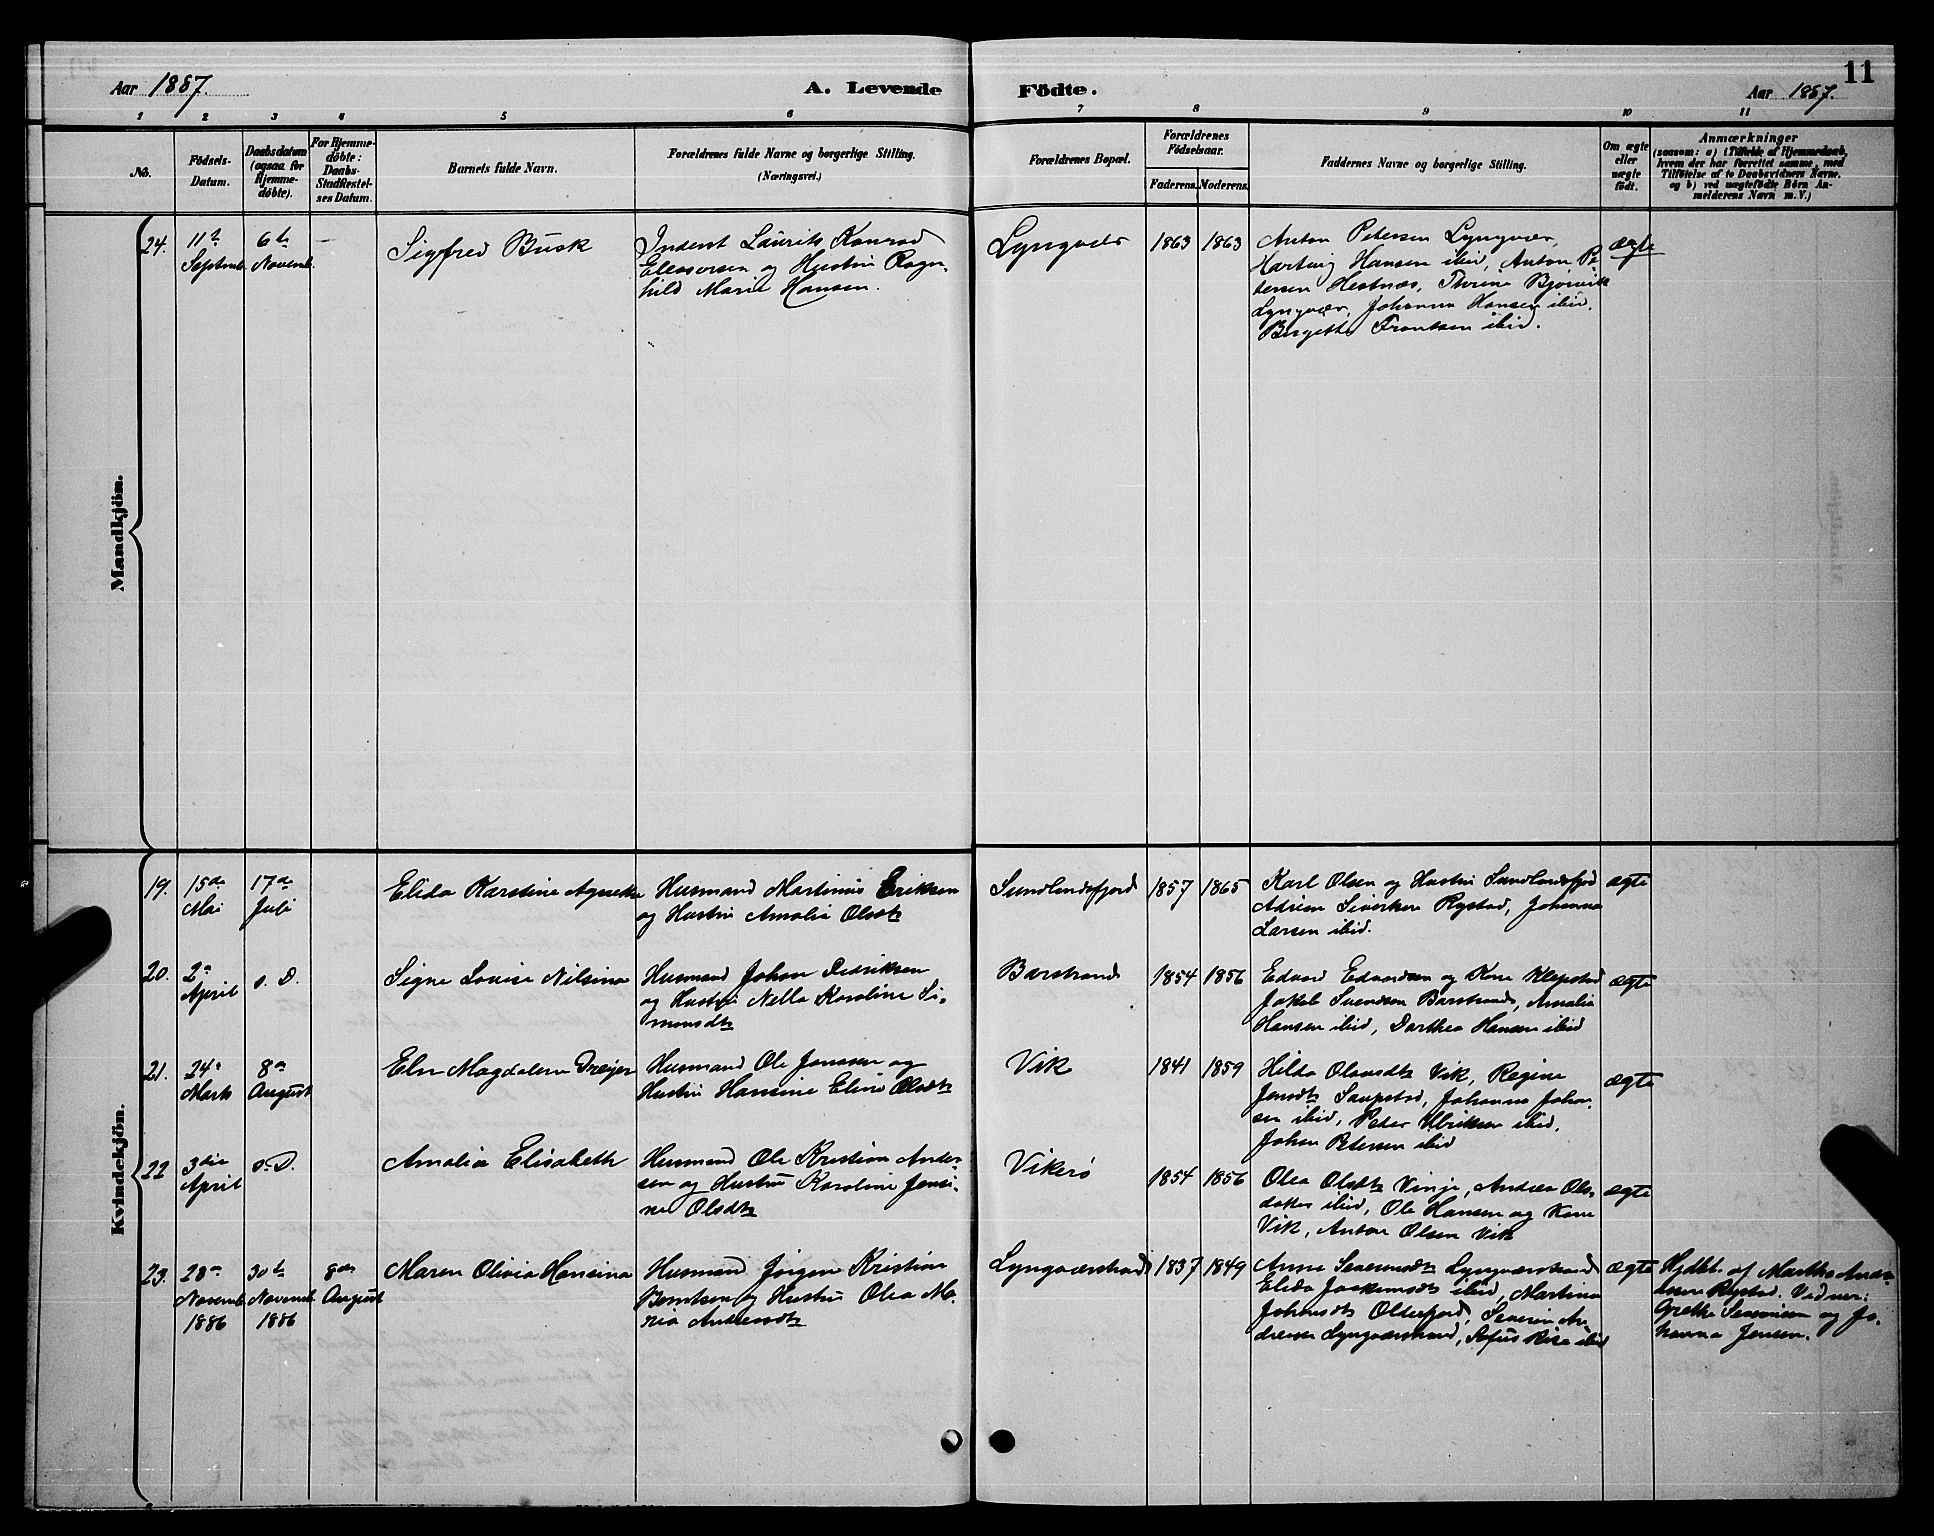 Aar 1887.
A. Levende
Födte.
Aar 1887.
11
1 2 3 4 5 6 7 8 9 10 11
No.
Födsels-
Datum.
Daabsdatum
(ogsaa for
Hjemme-
döbte).
For Hjemme-
döbte:
Daabs-
Stadfæstel-
ses Datum.
Barnets fulde Navn.
Forældrenes fulde Navne og borgerlige Stilling.
(Næringsvei.)
Forældrenes Bopæl.
Forældrenes
Födselsaar.
Faderens.
Moderens.
Faddernes Navne og borgerlige Stilling.
Om ægte
eller
uægte
födt.
Anmærkninger
(saasom: a) i Tilfælde af Hjemmedaab,
hvem der har forrettet samme, med
Tilföielse af to Daabsvidners Navne,
og b) ved uægtefödte Börn An-
melderens Navn m. V.)
Mandkjön.
24.
11te
Septemb.
6te
Novemb.
—
Sigfred Busk
Inderst Laurits Konrad
Eleasersen og Hustru Ragn-
hild Marie Hansen.
Lyngvær
1863
1863
Anton Petersen Lyngvær,
Hartvig Hansen ibid, Anton Pe-
tersen Hestnæs, Thrine Bjørvik
Lyngvær, Johanna Hansen ibid.
Bergitte Frantsen ibid.
ægte
Kvindekjön.
19.
15de
Mai
17de
Juli
Elida Karstine Agnethe
Husmand Martinus Eriksen
og Hustru Amalia Olsdt
Sundlandsfjord
1857
1865
Karl Olsen og Hustru Sundlandsfjord
Adrian Siverksen Rystad, Johanna
Larsen ibid.
ægte
20.
2n
April
s. D.
Signe Lovise Nilsina
Husmand Johan Didriksen
og Hustru Nella Karoline Si-
monsdt
Barstrand
1854
1856
Edvard Edvardsen og Kone Klepstad
Jakob Svendsen Barstrand, Amalia
Hansen ibid, Dorthea Hansen ibid
ægte
21.
24.
Marts
8de
August
Eln Magdalena Dreyer
Husmand Ole Jensen og
Hustru Hansine Eline Olsdt
Vik
1841
1859
Hilda Olausdt Vik, Regine
Jensdt Saupstad, Johanna Johan-
sen ibid, Peter Ulriksen ibid,
Johan Petersen ibid
ægte
22
3die
April
s. D.
Amalia Elisabeth
Husmand Ole Kristian Ander-
sen og Hustru Karoline Jensi-
ne Olsdt
Vikerø
1854
1856
Olea Olsdt Vinje, Andrea Ols-
datter ibid, Ole Hansen og Kone
Vik, Anton Olsen Vik
ægte
23.
28n
Novemb.
1886
30te
Novemb.
1886
8de
August
Maren Olivia Hansina
Husmand Jörgen Kristian
Berntsen og Hustru Olea Ma-
ria Andersdt
Lyngværstrand
1837
1849
Anne Severinsdt Lyngværstrand
Elida Joakimsdt ibid, Martina
Johansdt Olderfjord, Severin An-
dersen Lyngværstrand, Sofus Risø ibid
ægte
Hjdbt. af Martha Ander-
sen Rystad. Vidner:
Grethe Severinsen og Jo-
hanna Jensen.